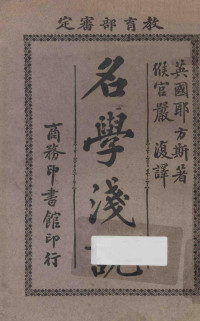 教育部審定
英國耶方斯著
候官嚴復譯
名學淺說
商務印書館印行